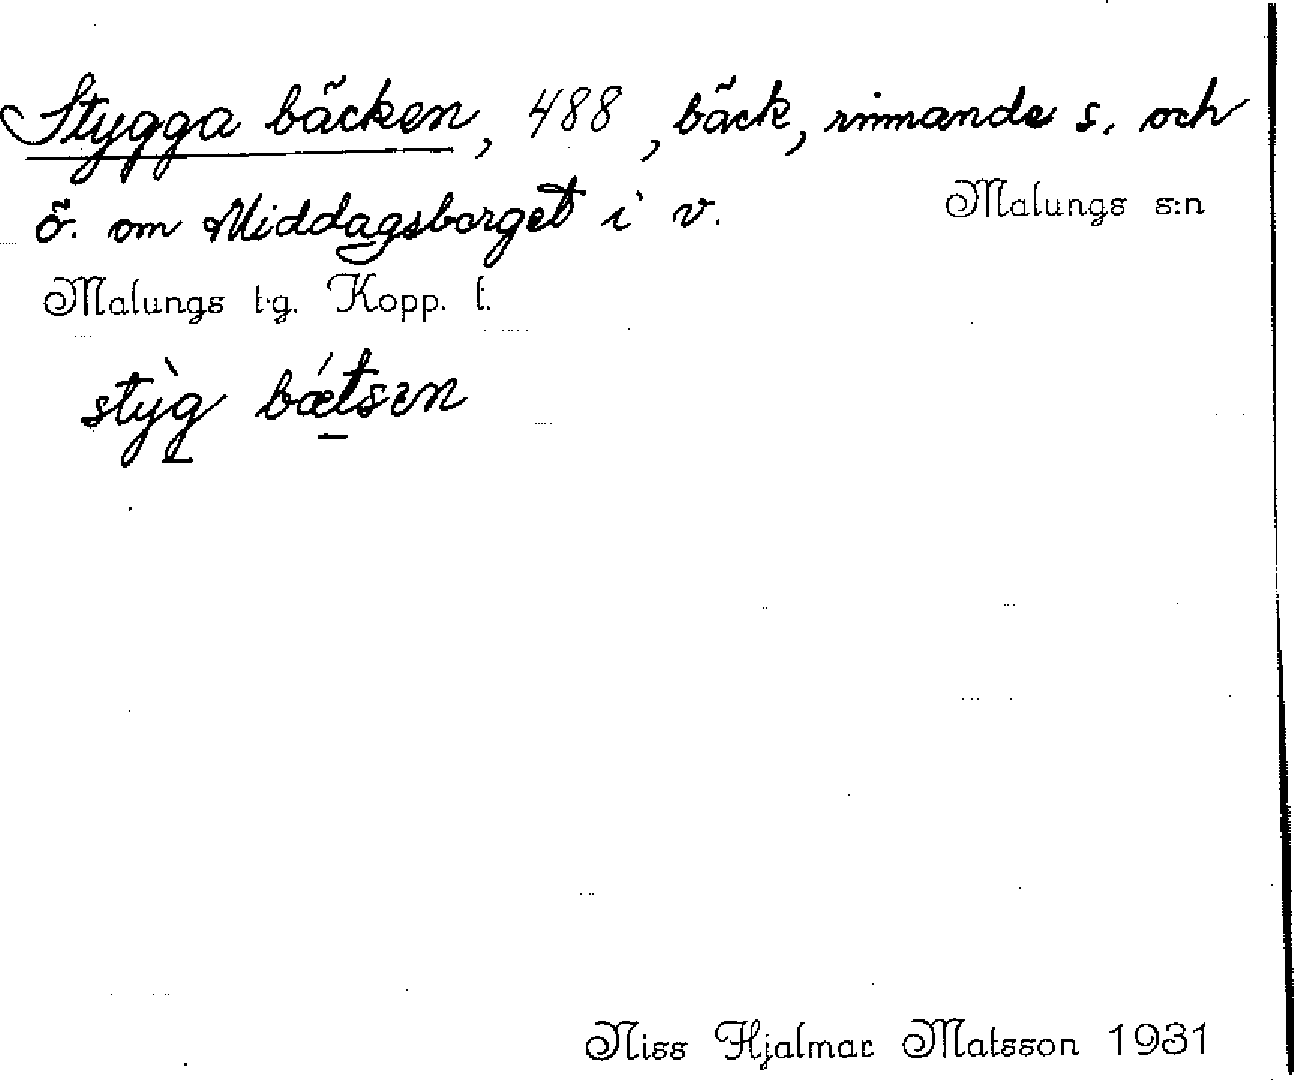 Stygga bäcken, 488, bäck, rinnande s. och
ö. om Middagsberget i v. Malungs s:n
Malungs t·g. Kopp. l.
stỳg bǽtsen
Niss Hjalmar Matsson 1931